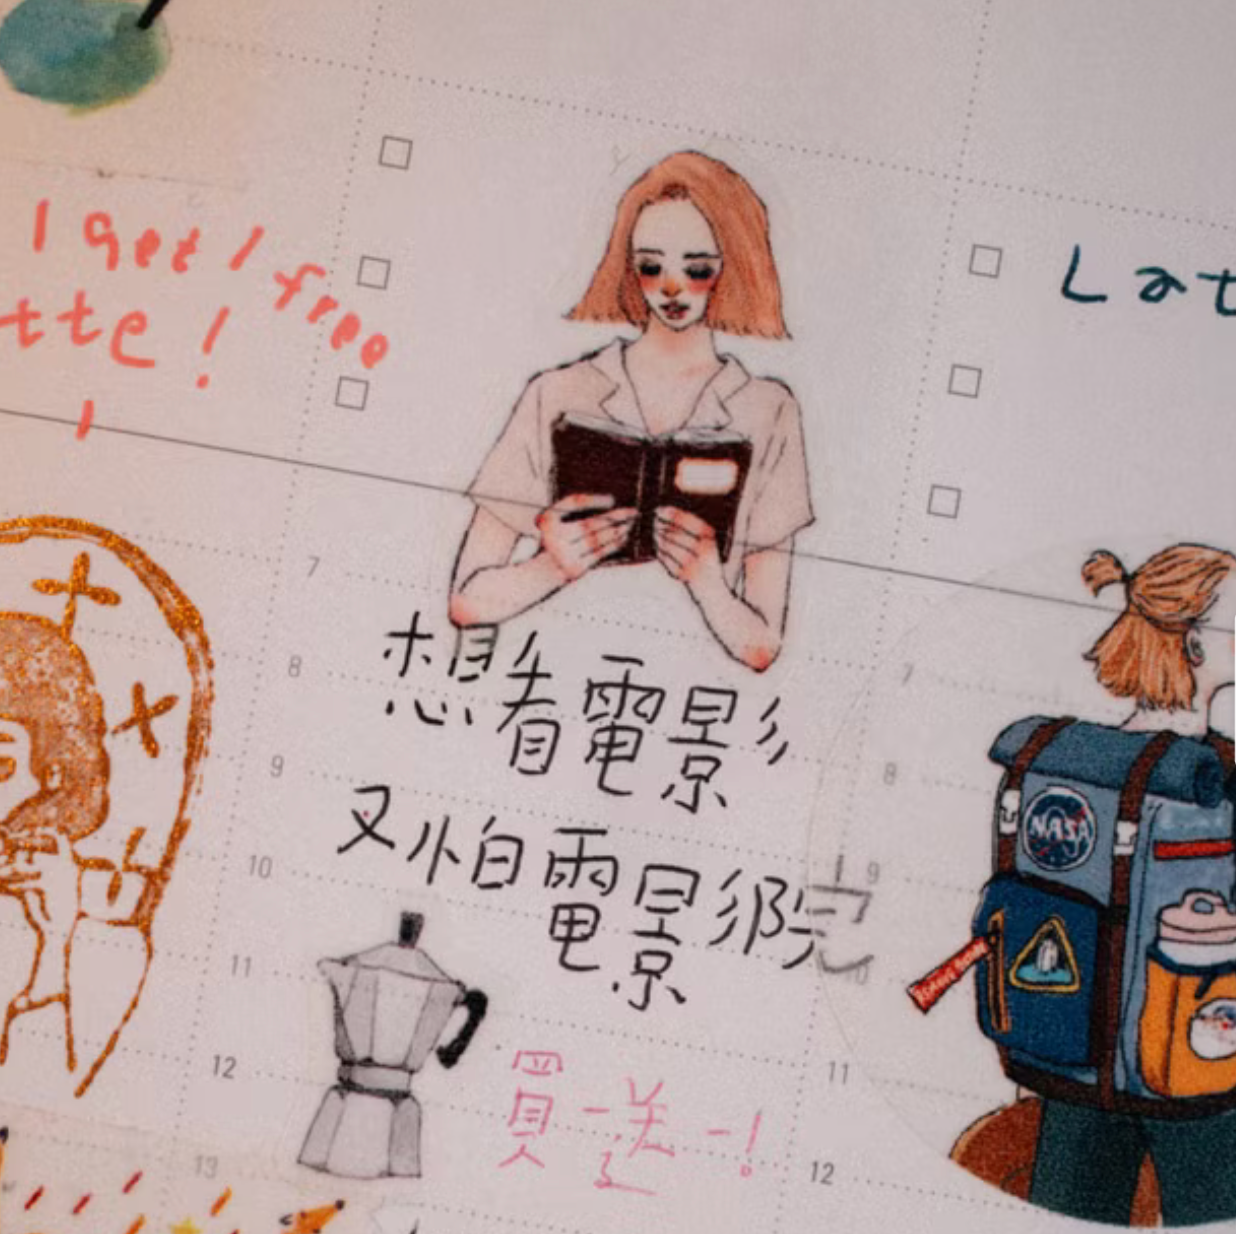 I get 1 free
tte!
Lat
7
8
想看電影
9
又怕電影院
10
11
買一送一!
12
13
7
8
NASA
9
10
11
12